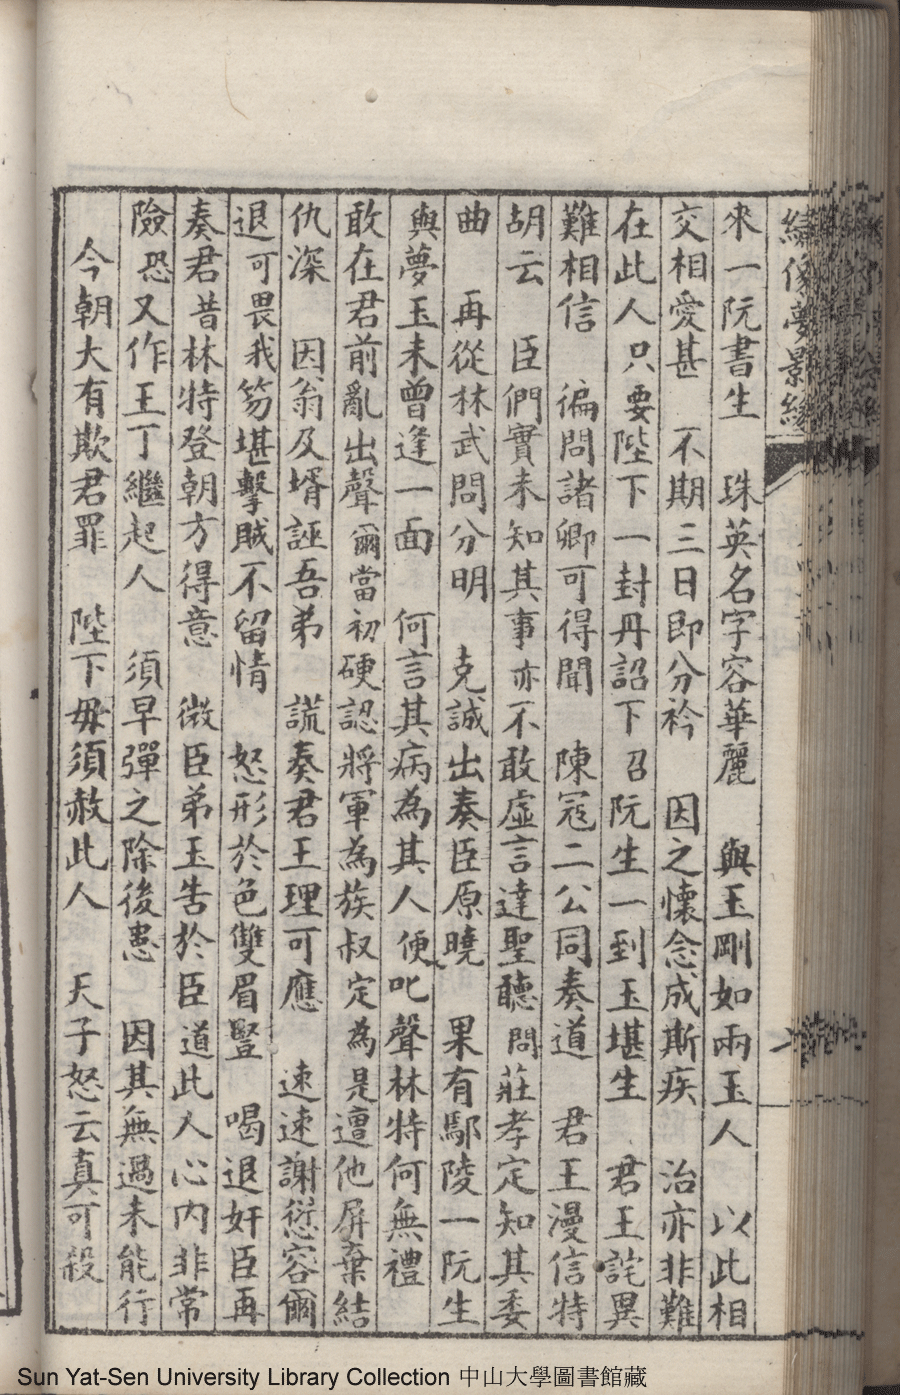 繡像夢影緣
來一阮書生　珠英名字容華麗　與玉剛如兩玉人　以此相
交相愛甚　不期三日即分衿　因之懷念成斯疾　治亦非難
在此人只要陛下一封丹詔下召阮生一到玉堪生　君王詫異
難相信　徧問諸卿可得聞　陳寇二公同奏道　君王漫信特
胡云　臣們實未知其事亦不敢虛言達聖聽問莊孝定知其委
曲　再從林武問分明　克誠出奏臣原曉　果有鄢陵一阮生
與夢玉未曾逢一面　何言其病為其人便叱聲林特何無禮
敢在君前亂出聲爾當初硬認將軍為族叔定為是遭他屏棄結
仇深　因翁及壻誣吾弟　謊奏君王理可應　速速謝愆容爾
退可畏我笏堪擊賊不留情　怒形於色雙眉豎　喝退奸臣再
奏君昔林特登朝方得意　微臣弟玉吿於臣道此人心內非常
險恐又作王丁繼起人　須早彈之除後患　因其無過未能行
今朝大有欺君罪　陛下毋須赦此人　天子怒云真可殺
Sun Yat-Sen University Library Collection 中山大學圖書館藏